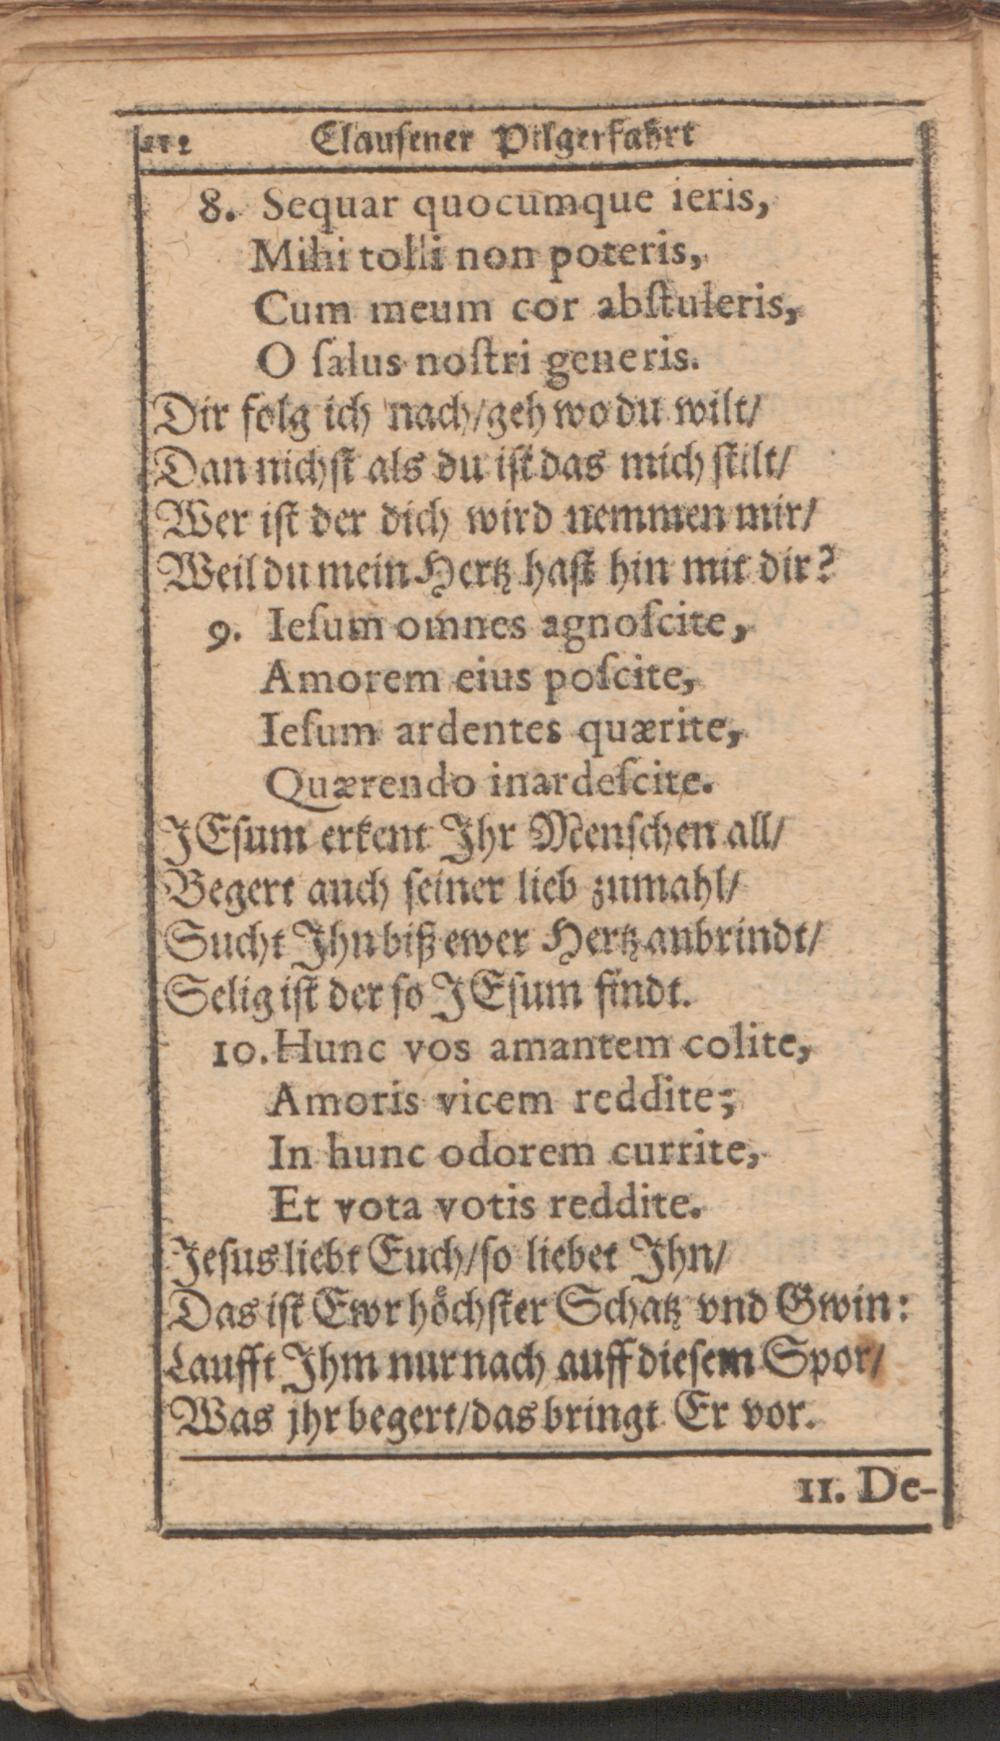 Clausener Pilgerfahrt
8. Sequar quocumque ieris,
Mihi tolli non poteris,
Cum meum cor abſtuleris,
O ſalus noſtri generis.
Dir folg ich nach/geh wo du wilt/
Dan nichſt als du iſt das mich ſtilt/
Wer iſt der dich wird nemmen mir/
Weil du mein Hertz haſt hin mit dir?
9. Ieſum omnes agnoſcite,
Amorem eius poſcite,
Ieſum ardentes quærite,
Quærendo inardeſcite.
JEſum erkent Jhr Menſchen all/
Begert auch ſeiner lieb zumahl/
Sucht Jhn biß ewer Hertz anbrindt/
Selig iſt der ſo JEſum findt.
10. Hunc vos amantem colite,
Amoris vicem reddite;
In hunc odorem currite,
Et vota votis reddite.
Jeſus liebt Euch/ſo liebet Jhn/
Das iſt Ewr höchſter Schatz vnd Gwin:
Laufft Jhm nur nach auff dieſem Spor/
Was jhr begert/das bringt Er vor.
11. De-